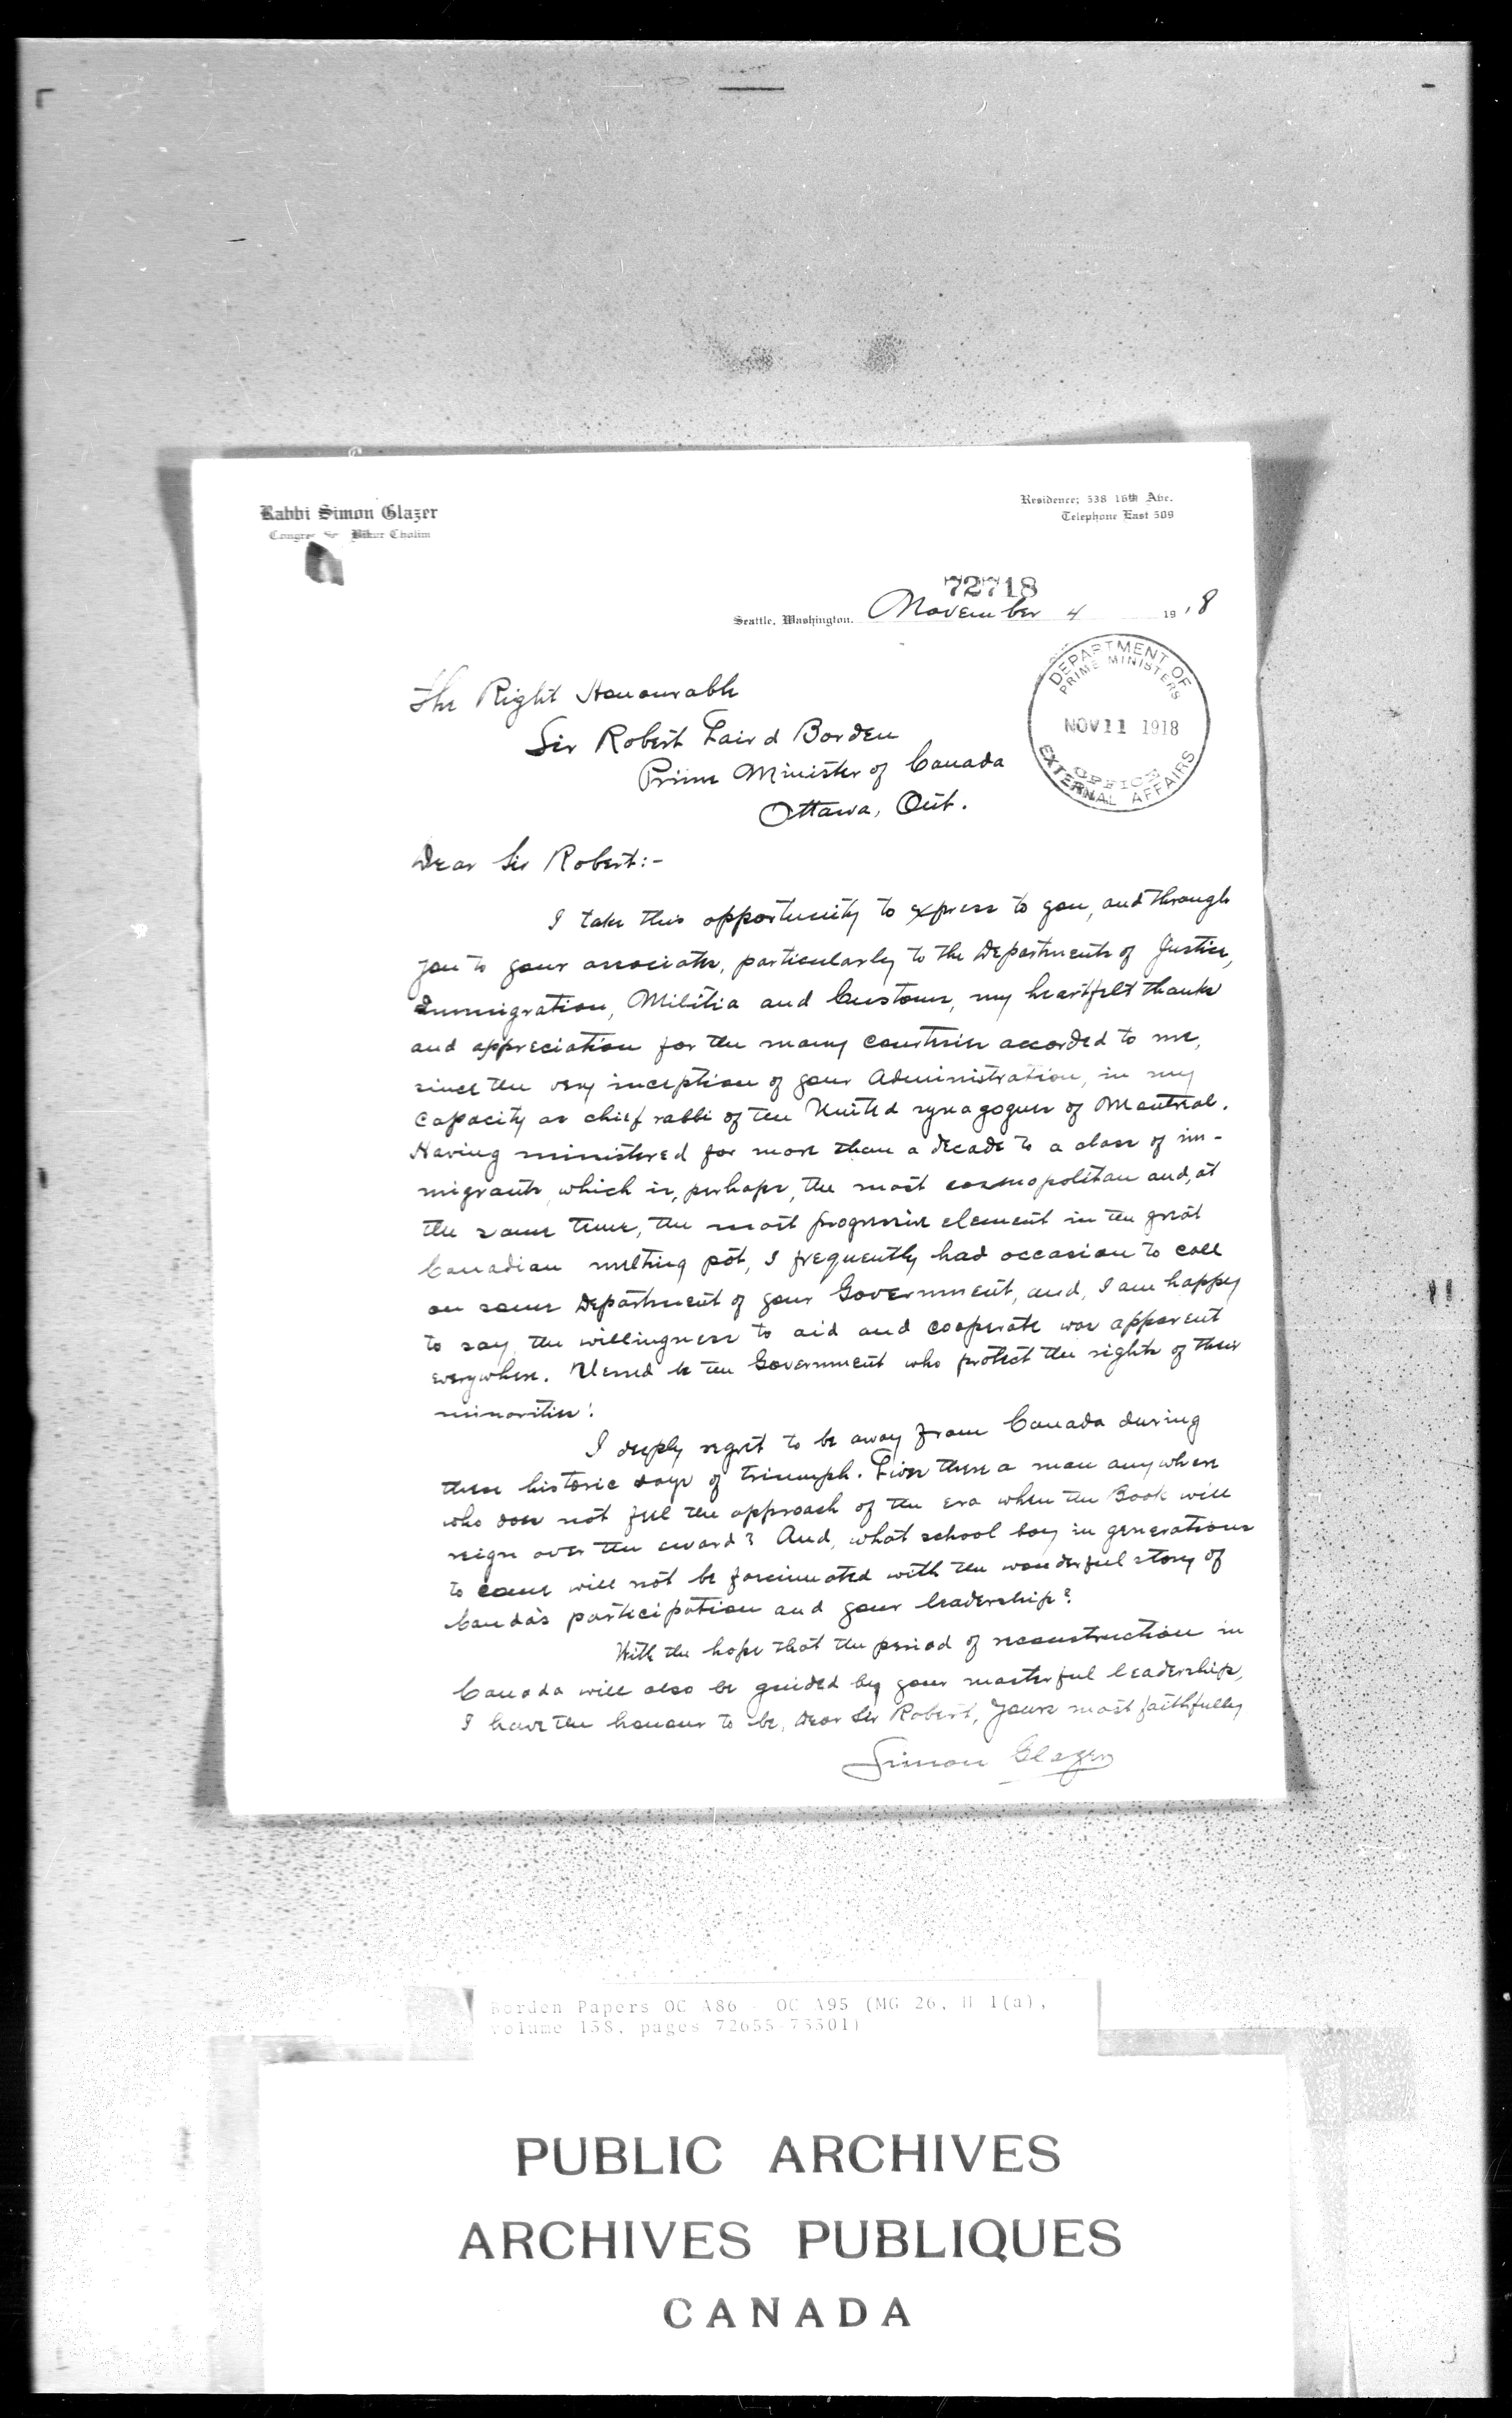 Rabbi Simon Glazer
Bikur Cholim
Residence; 538 16th Ave.
Telephone East 509
72718
Seattle, Washington. November 4 1918
DEPARTMENT OF
PRIME MINISTERS
NOV 11 1918
OFFICE
EXTERNAL AFFAIRS
The Right Honourable
Sir Robert Laird Borden
Prime Minister of Canada
Ottawa, Ont.
Dear Sir Robert:-
I take this opportunity to express to you, and through
you to your associates, particularly to the Departments of Justice,
Immigration, Militia and Customs, my heartfelt thanks
and appreciation for the many courtesies accorded to me,
since the very inception of your Administration, in my
capacity as chief rabbi of the United synagogues of Montreal.
Having ministered for more than a decade to a class of im-
migrants, which is, perhaps, the most cosmopolitan and, at
the same time, the most progressive element in the great
Canadian melting pot, I frequently had occasion to call
on some Department of your Government, and, I am happy
to say, the willingness to aid and cooperate was apparent
everywhere. Blessed be the Government who protect the rights of their
minorities!
I deeply regret to be away from Canada during
these historic days of triumph. Lives there a man anywhere
who does not feel the approach of the era when the Book will
reign over the sword? And, what school boy in generations
to come will not be fascinated with the wonderful story of
Canda's participation and your leadership?
With the hope that the period of reconstruction in
Canada will also be guided by your masterful leadership,
I have the honour to be, Dear Sir Robert, yours most faithfully
Simon Glazer
Borden Papers OC A86 - OC A95 (MG 26, H 1(a),
volume 138, pages 72655-73301)
PUBLIC ARCHIVES
ARCHIVES PUBLIQUES
CANADA